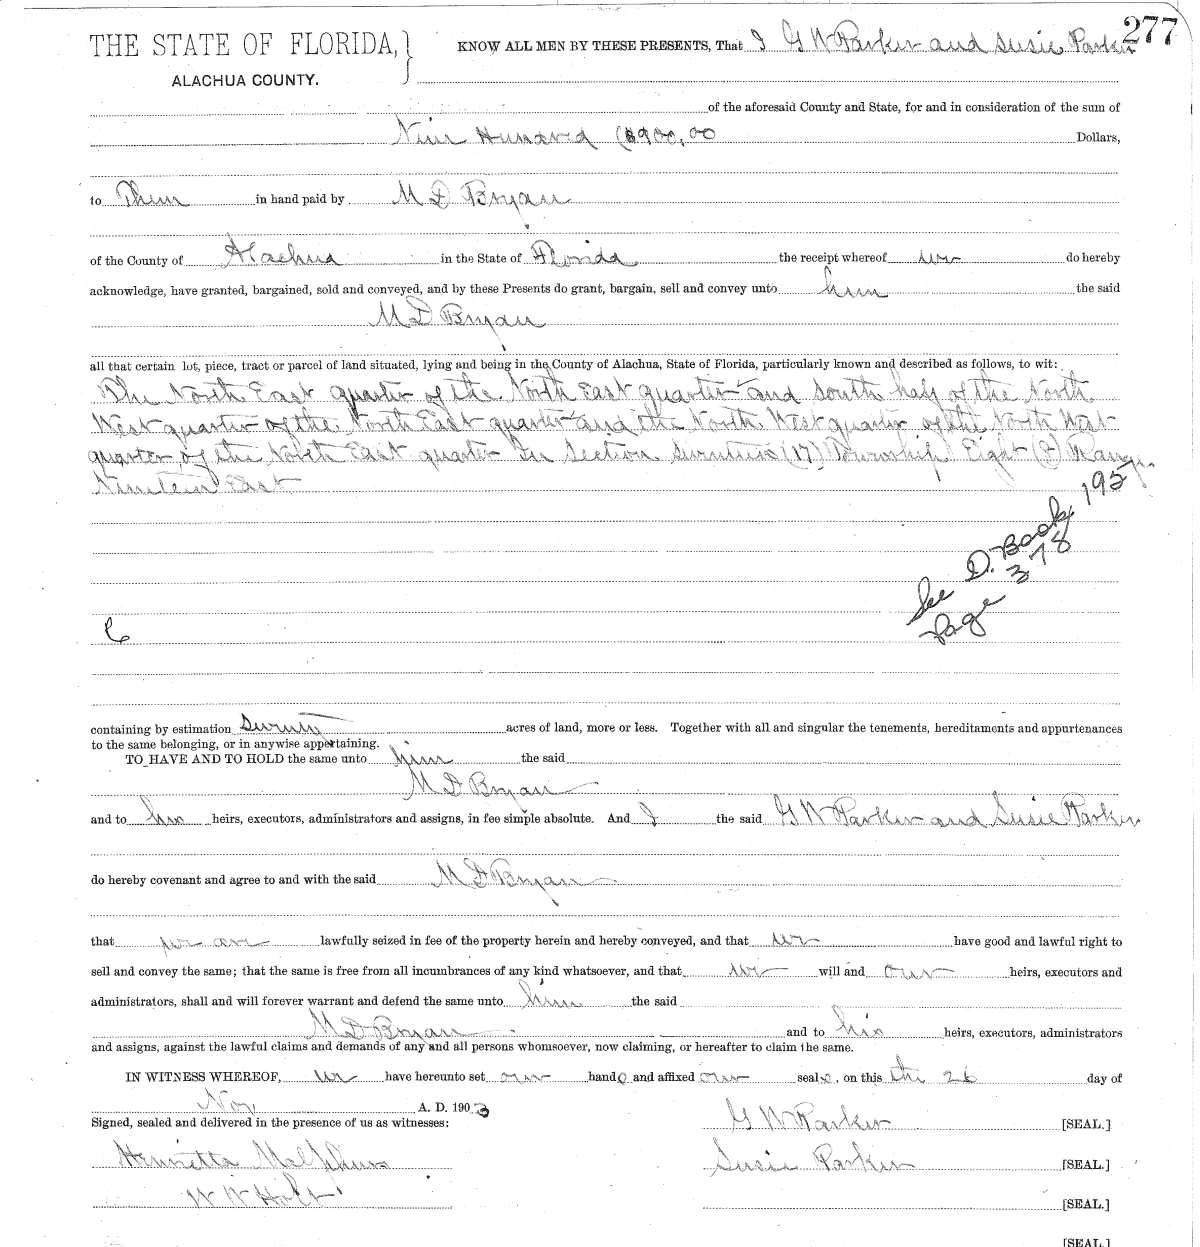 277
THE STATE OF FLORIDA,
ALACHUA COUNTY.
KNOW ALL MEN BY THESE PRESENTS, That I G W Parker and Susie Parker
of the aforesaid County and State, for and in consideration of the sum of
Nine Hundred ($900,00 Dollars,
to Them in hand paid by M D Bryan
of the County of Alachua in the State of Florida the receipt whereof we do hereby
acknowledge, have granted, bargained, sold and conveyed, and by these Presents do grant, bargain, sell and convey unto him the said
M D Bryan
all that certain lot, piece, tract or parcel of land situated, lying and being in the County of Alachua, State of Florida, particularly known and described as follows, to wit:
The North East quarter of the North East quarter and South half of the North
West quarter of the North East quarter and the North West quarter of the North West
quarter of the North East quarter In Section Seventeen (17) Township Eight (8) Range
Nineteen East
See D. Book 195
Page 378
containing by estimation Seventy acres of land, more or less. Together with all and singular the tenements, hereditaments and appurtenances
to the same belonging, or in anywise appertaining.
TO HAVE AND TO HOLD the same unto him the said
M D Bryan
and to his heirs, executors, administrators and assigns, in fee simple absolute. And I the said G W Parker and Susie Parker
do hereby covenant and agree to and with the said M D Bryan
that we are lawfully seized in fee of the property herein and hereby conveyed, and that we have good and lawful right to
sell and convey the same; that the same is free from all incumbrances of any kind whatsoever, and that we will and our heirs, executors and
administrators, shall and will forever warrant and defend the same unto him the said
M D Bryan and to his heirs, executors, administrators
and assigns, against the lawful claims and demands of any and all persons whomsoever, now claiming, or hereafter to claim the same.
IN WITNESS WHEREOF, we have hereunto set our hands and affixed our seals, on this the 26 day of
Nov A. D. 1903
Signed, sealed and delivered in the presence of us as witnesses:
G W Parker [SEAL.]
Henrietta Malphurs
Susie Parker [SEAL.]
W W Holt
[SEAL.]
[SEAL.]